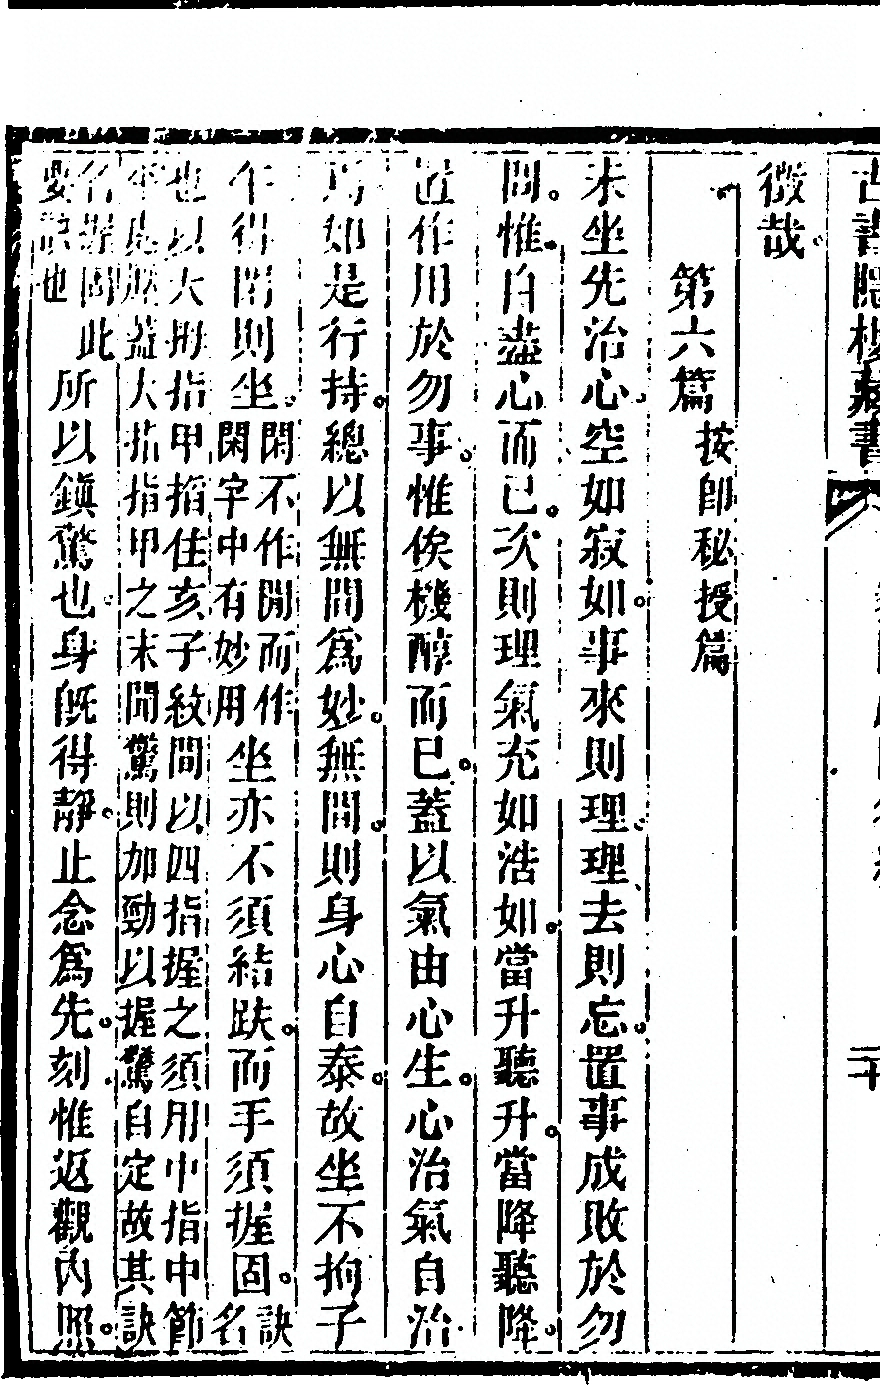 古書隱樓藏書
二十
微哉。
第六篇 按即秘授篇
未坐先治心空如寂如。事來則理。理去則忘。置事成敗於勿
問。惟自盡心而已。次則理氣充如浩如。當升聽升。當降聽降。
置作用於勿事。惟俟機醇而已。蓋以氣由心生。心治氣自治
焉如是行持。總以無間爲妙。無間。則身心自泰。故坐不拘子
午得閒則坐。閑不作閒而作閑字中有妙用坐亦不須結趺。而手須握固。訣名
也以大拇指甲搯住亥子紋間以四指握之須用中指中節
蓋大指指甲之末聞驚則加勁以握驚自定故其訣
名握固此要訣也所以鎮驚也。身旣得靜。止念爲先。刻惟返觀內照。